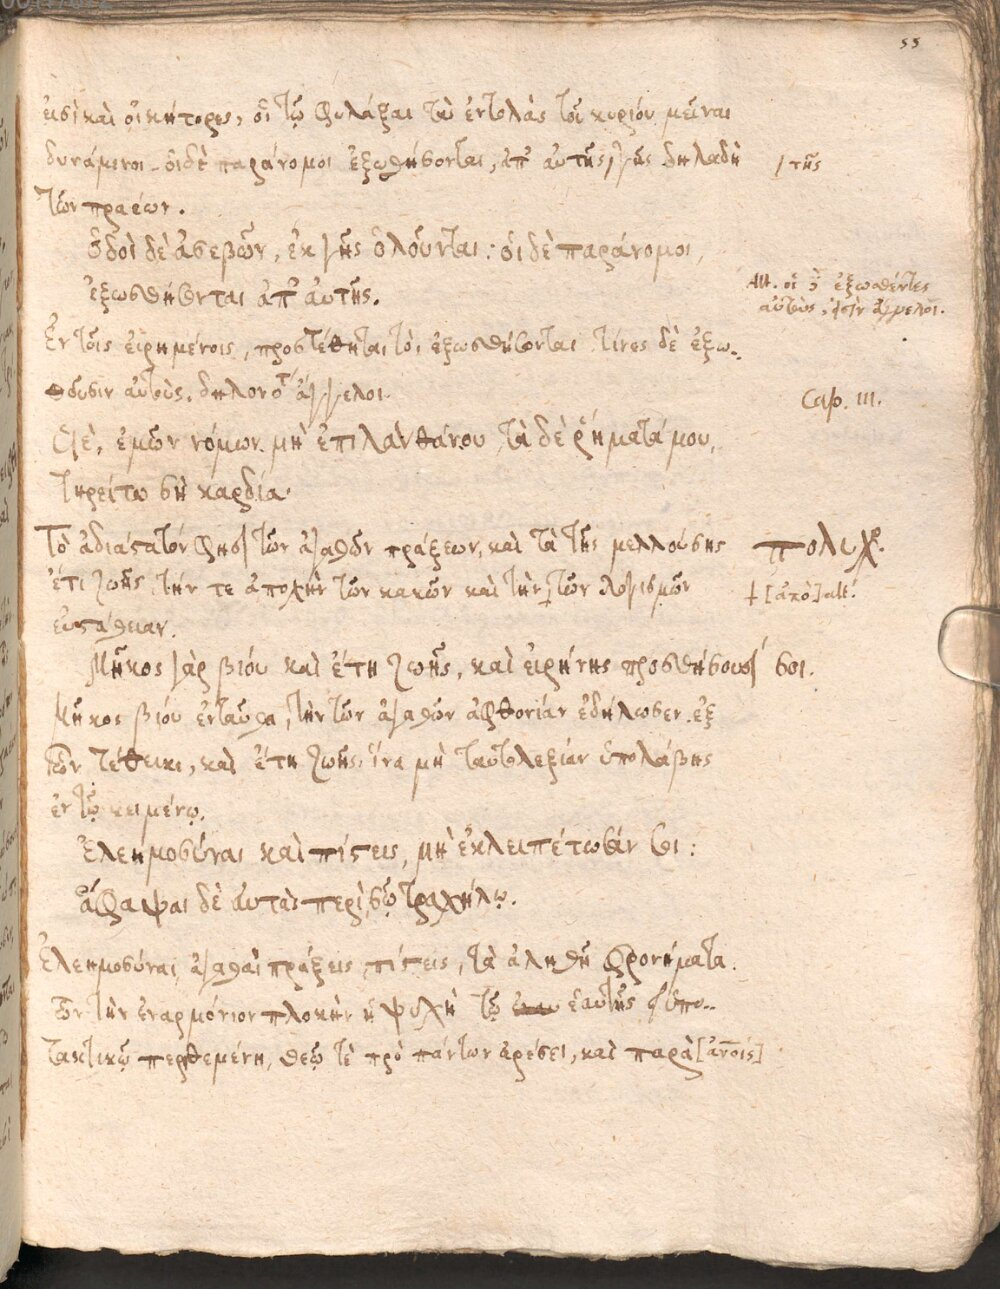 55
εἰσὶ καὶ οἰκήτορες, οἳ τῷ φυλάξαι τὰς ἐντολὰς τοῦ κυρίου μεῖναι
δυνάμενοι. ὁι δὲ παράνομοι ἐξωθήσονται, ἀπ' ἀυτῆς / γῆς δηλαδὴ / τῆς
τῶν πραέων.
ὁδοὶ δὲ ἀσεβῶν, ἐκ γῆς ὀλοῦνται: ὁι δὲ παράνομοι,
ἐξωσθήσονται ἀπ' ἀυτῆς.
Alt. οἱ ἐξωθέντες
αὐτοὺς, ἄγγελοι.
Ἐν τοῖς εἰρημένοις, προστέθηται τὸ, ἐξωσθήσονται. τίνες δὲ ἐξω-
θοῦσιν αὐτοὺς, δηλονότι ἄγγελοι.
Cap. III.
Υἱὲ, ἐμῶν νόμων μὴ ἐπιλανθάνου, τὰ δὲ ῥήματά μου,
τηρείτω σὴ καρδία.
Τὸ ἀδιάστατόν φησι τῶν ἀγαθῶν πράξεων, καὶ τὰ τῆς μελλούσης πολυχ.
ἔτι ζωῆς, τήν τε ἀποχὴν τῶν κακῶν καὶ τὴν ┼ τῶν λογισμῶν ┼ [ἀπὸ] alt.
εὐστάθειαν.
Μῆκος γὰρ βίου καὶ ἔτη ζωῆς, καὶ εἰρήνης προσθήσουσί σοι.
Μῆκος βίου ἐνταῦθα, τὴν τῶν ἀγαθῶν ἀφθονίαν ἐδήλωσεν. ἐξ
ὧν τέθεικε, καὶ ἔτη ζωῆς, ἵνα μὴ ταυτολεξίαν ὑπολάβῃς
ἐν τῷ κειμένῳ.
Ἐλεημοσύναι καὶ πίστεις, μὴ ἐκλειπέτωσάν σοι:
ἄφαψαι δὲ ἀυτὰς περὶ σῷ τραχήλῳ.
Ἐλεημοσύναι, ἀγαθαὶ πράξεις, πίστεις, τὰ ἀληθῆ φρονήματα.
ὧν τὴν ἐναρμόνιον πλοκὴν ἡ ψυχὴ τῷ ἑαυτῆς ὑπο-
τακτικῷ περιθεμένη, θεῷ τὲ πρὸ πάντων ἀρέσει, καὶ παρὰ [ἀνοις]